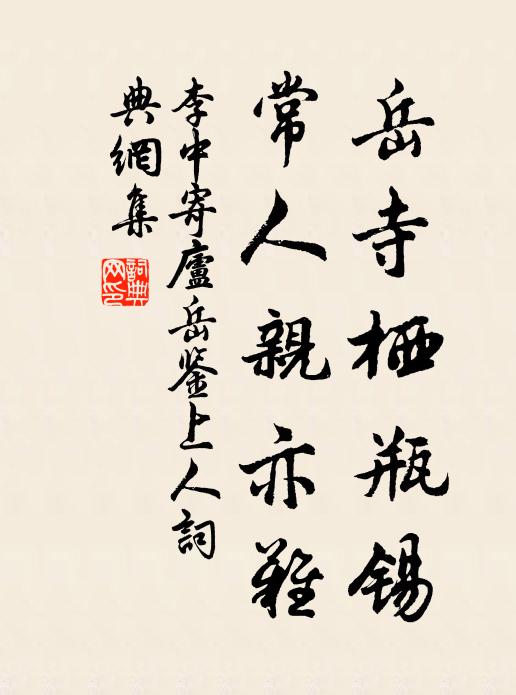 岳寺栖瓶锡
常人親亦難
李中寄廬岳鉴上人詞
典網集
詞典网印